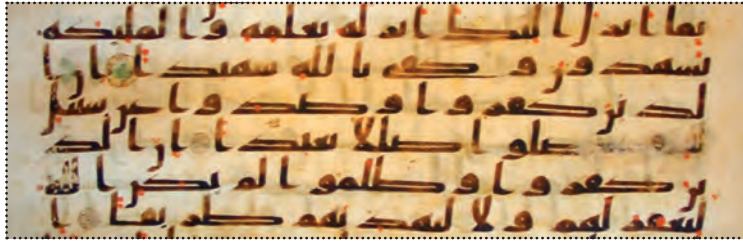 بما انزل اليك انزله بعلمه والملئكه
يشهدون وكفى بالله شهيدا ان ا
لذين كفروا وصدوا عن سبيل
ضلوا ضلالا بعيدا ان الذ
ين كفروا وظلموا لم يكن الله
ليغفر لهم ولا ليهديهم طريقا ا